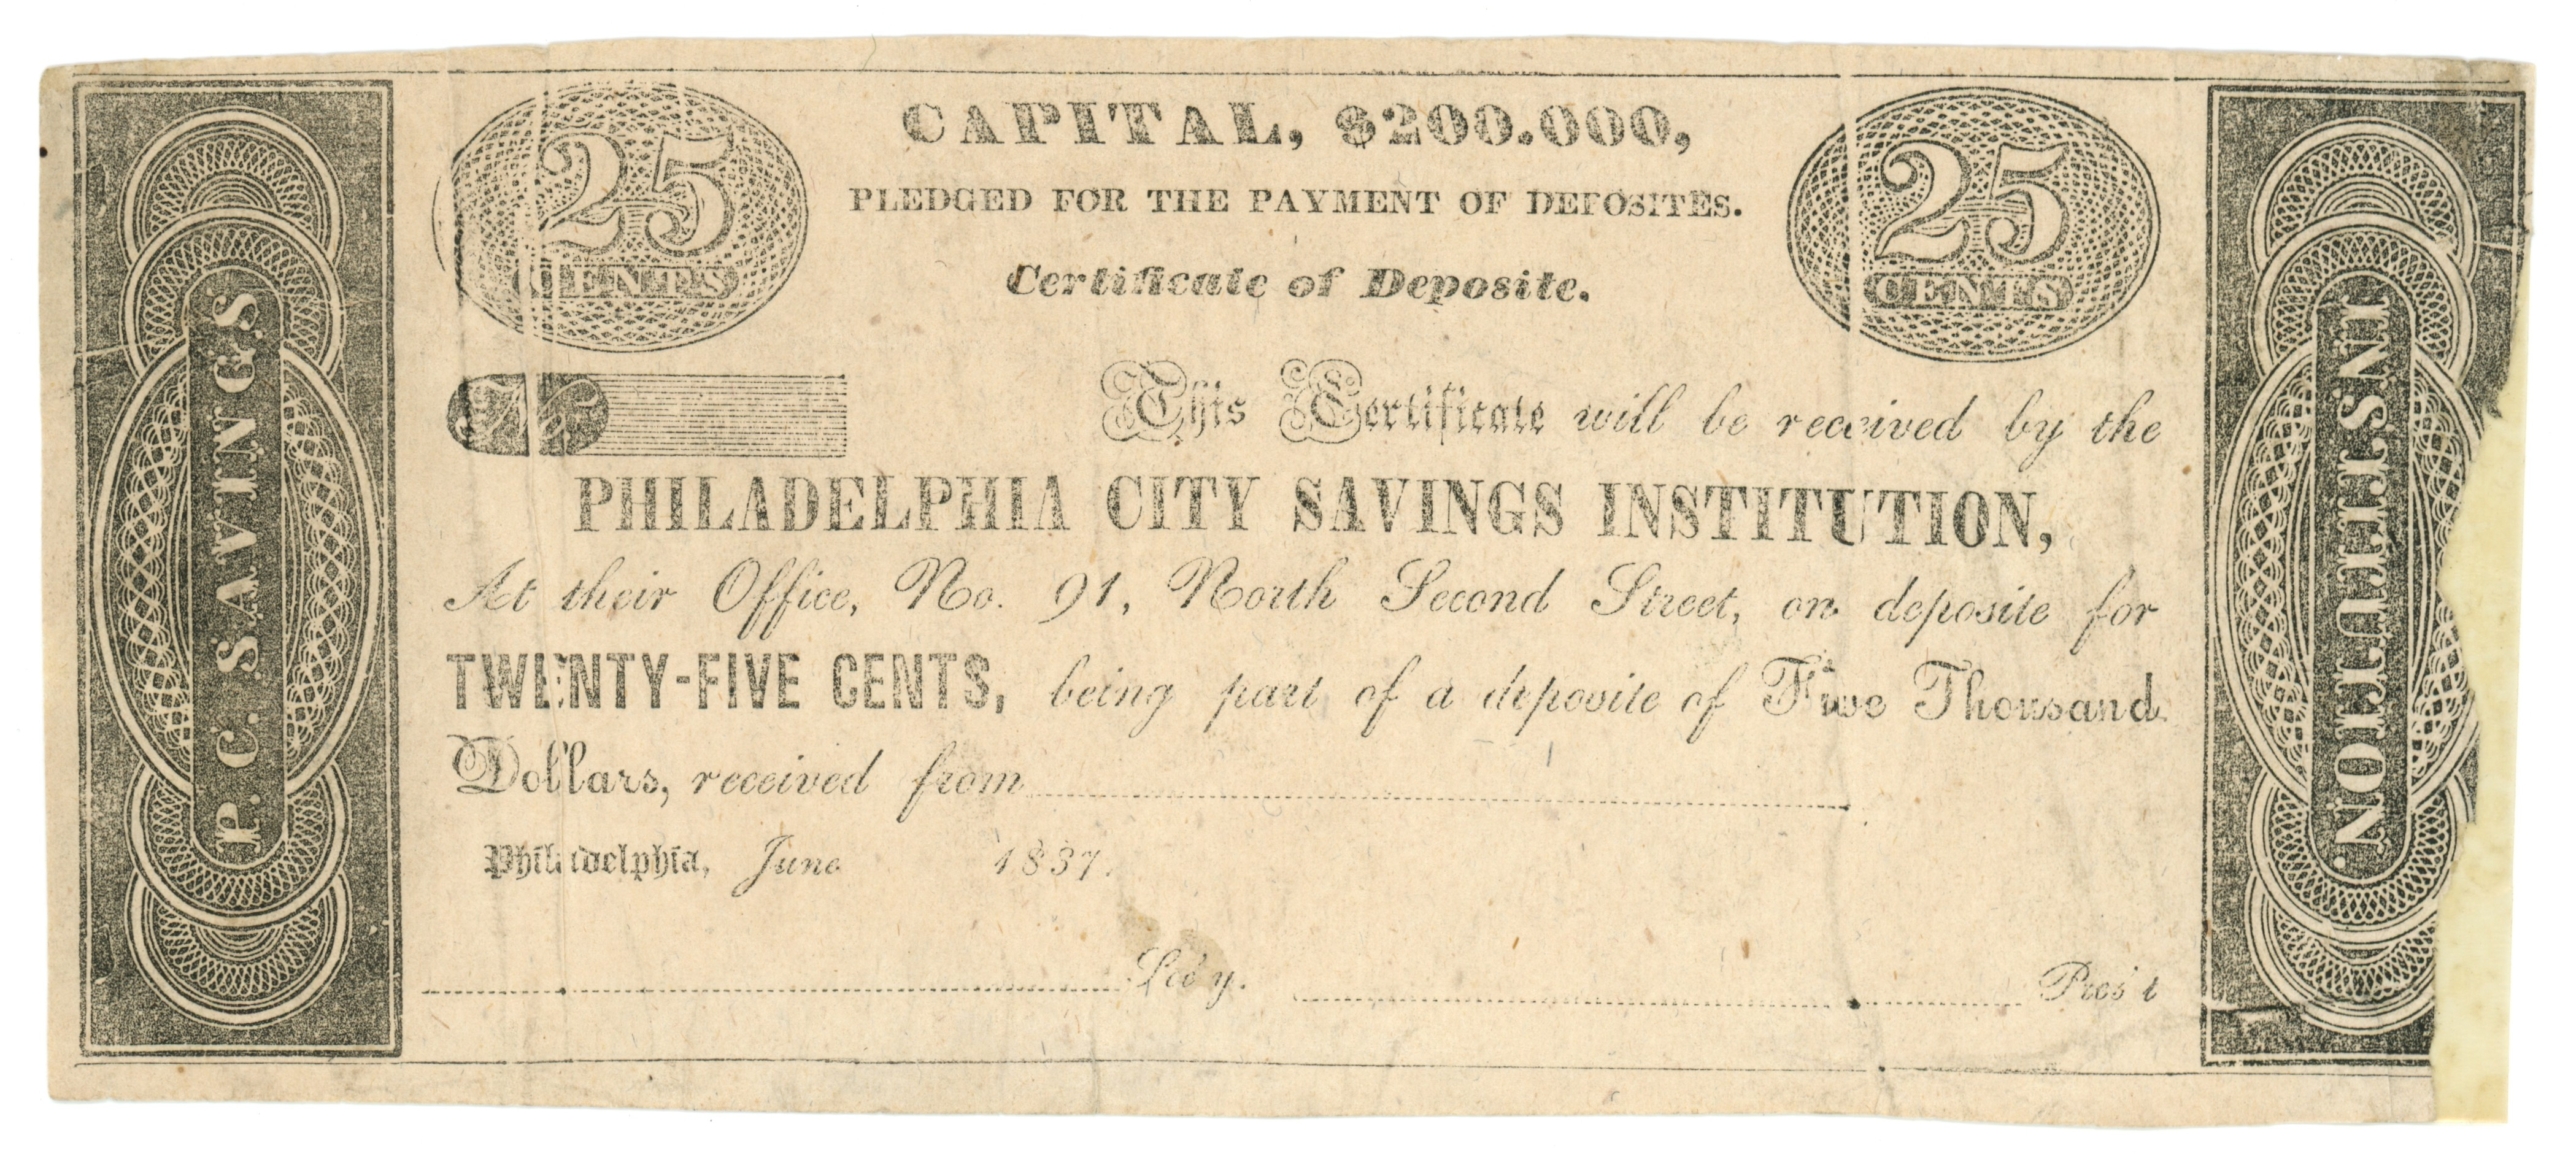 P. C. SAVINGS
25
CENTS
CAPITAL, $200.000,
PLEDGED FOR THE PAYMENT OF DEPOSITES.
Certificate of Deposite.
25
CENTS
This Certificate will be received by the
PHILADELPHIA CITY SAVINGS INSTITUTION,
At their Office, No. 91, North Second Street, on deposite for
TWENTY-FIVE CENTS, being part of a deposite of Five Thousand
Dollars, received from
Philadelphia, June 1837.
Sec'y.
Pres't
INSTITUTION.